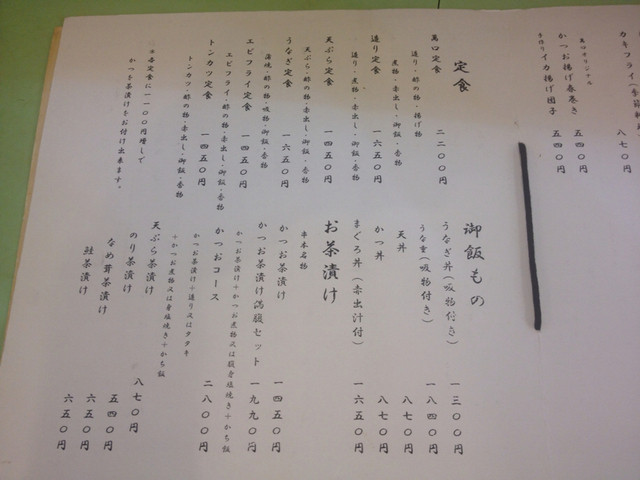 カキフライ(季節
八七〇円
萬口オリジナル
かつお揚げ春巻き
五四〇円
手作りイカ揚げ団子
五四〇円
定食
萬口定食
二二〇〇円
造り・酢の物・揚げ物
煮物・赤出し・御飯・香物
造り定食
一六五〇円
造り・煮物・赤出し・御飯・香物
天ぷら定食
一四五〇円
天ぷら・酢の物・赤出し・御飯・香物
うなぎ定食
一六五〇円
蒲焼・酢の物・吸物・御飯・香物
エビフライ定食
一四五〇円
エビフライ・酢の物・赤出し・御飯・香物
トンカツ定食
一四五〇円
トンカツ・酢の物・赤出し・御飯・香物
※各定食に一一〇〇円増しで
かつを茶漬けをお付け出来ます。
御飯もの
うなぎ丼(吸物付き)
一三〇〇円
うな重(吸物付き)
一八四〇円
天丼
八七〇円
かつ丼
八七〇円
まぐろ丼(赤出汁付)
一六五〇円
お茶漬け
串本名物
かつお茶漬け
一四五〇円
かつお茶漬け満腹セット
一九九〇円
かつお茶漬け+かつお煮物又は腹身塩焼き+かち飯
かつおコース
二八〇〇円
かつお茶漬け+造り又はタタキ
+かつお煮物又は身塩焼き+かち飯
天ぷら茶漬け
八七〇円
のり茶漬け
五四〇円
なめ茸茶漬け
六五〇円
鮭茶漬け
六五〇円